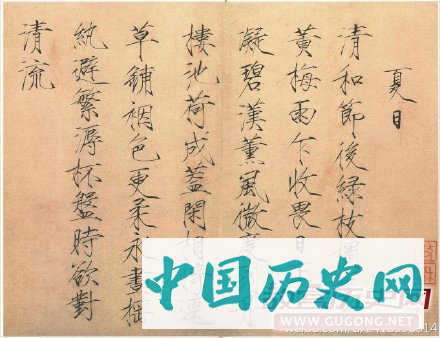 夏日
清和節後綠枝稠
黃梅雨乍收畏日
凝碧漢薰風微度
樓池荷成蓋閑相
草鋪裀色更柔永晝搖
紈避繁溽杯盤時欲對
清流
中国历史网
WWW.GUGONG.NET